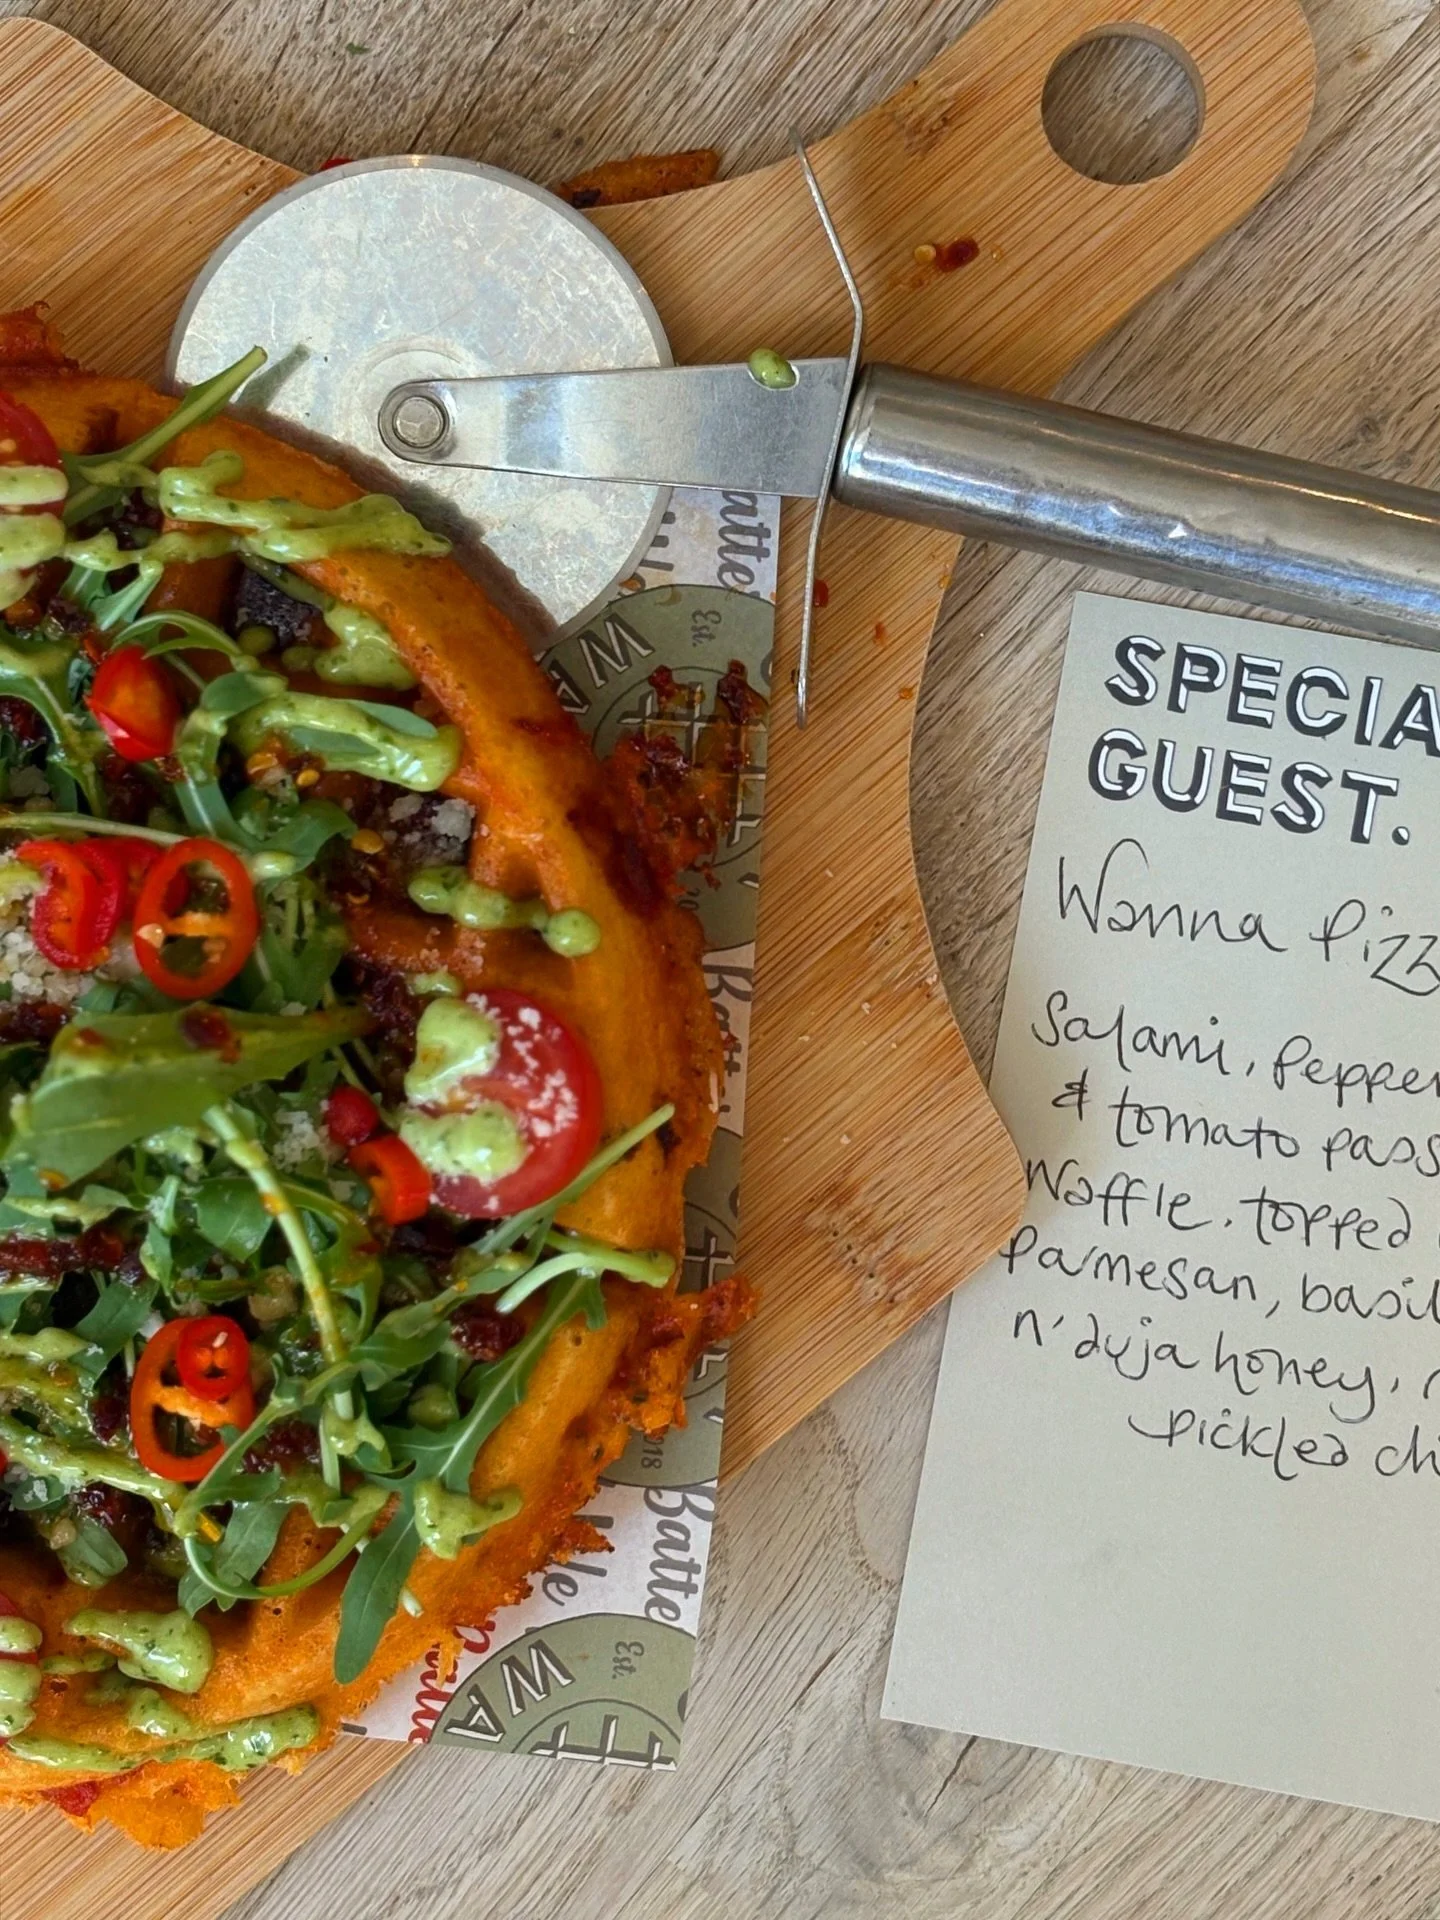 SPECIA
GUEST.
Wanna Pizz
Salami, Pepper
& tomato pass
Waffle, topped
Parmesan, basil
n'duja honey,
pickled ch
Batte
Est.
WA
Batt
2018
Batte
Est.
WA